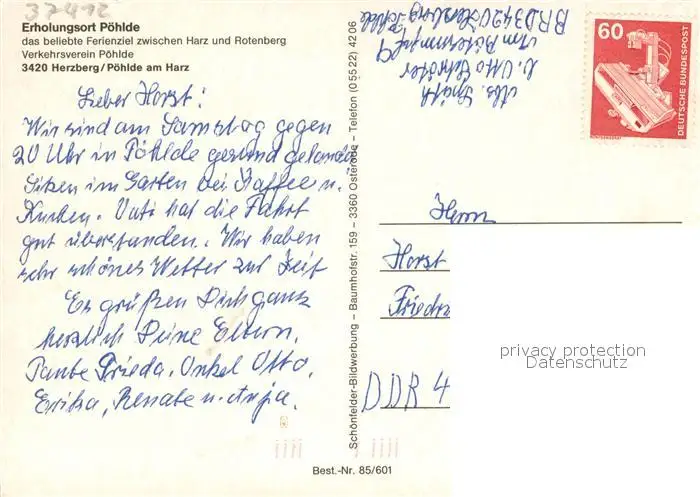 37412
Erholungsort Pöhlde
das beliebte Ferienziel zwischen Harz und Rotenberg
Verkehrsverein Pöhlde
3420 Herzberg/Pöhlde am Harz
Lieber Horst!
Wir sind am Samstag gegen
20 Uhr in Pöhlde gesund gelandet
Sitzen im Garten bei Kaffee u.
Kuchen. Vati hat die Fahrt
gut überstanden. Wir haben
sehr schönes Wetter zur Zeit
Es grüßen Dich ganz
herzlich Deine Eltern,
Tante Frieda, Onkel Otto,
Erika, Renate u. Anja.
Schönfelder-Bildwerbung – Baumhofstr. 159 – 3360 Osterode – Telefon (0 55 22) 42 06
Best.-Nr. 85/601
Abs.
Otto
Am
BRD 3420 Herzberg
Pöhlde
60
DEUTSCHE BUNDESPOST
Herrn
Horst
Friedr
DDR 4
privacy protection
Datenschutz